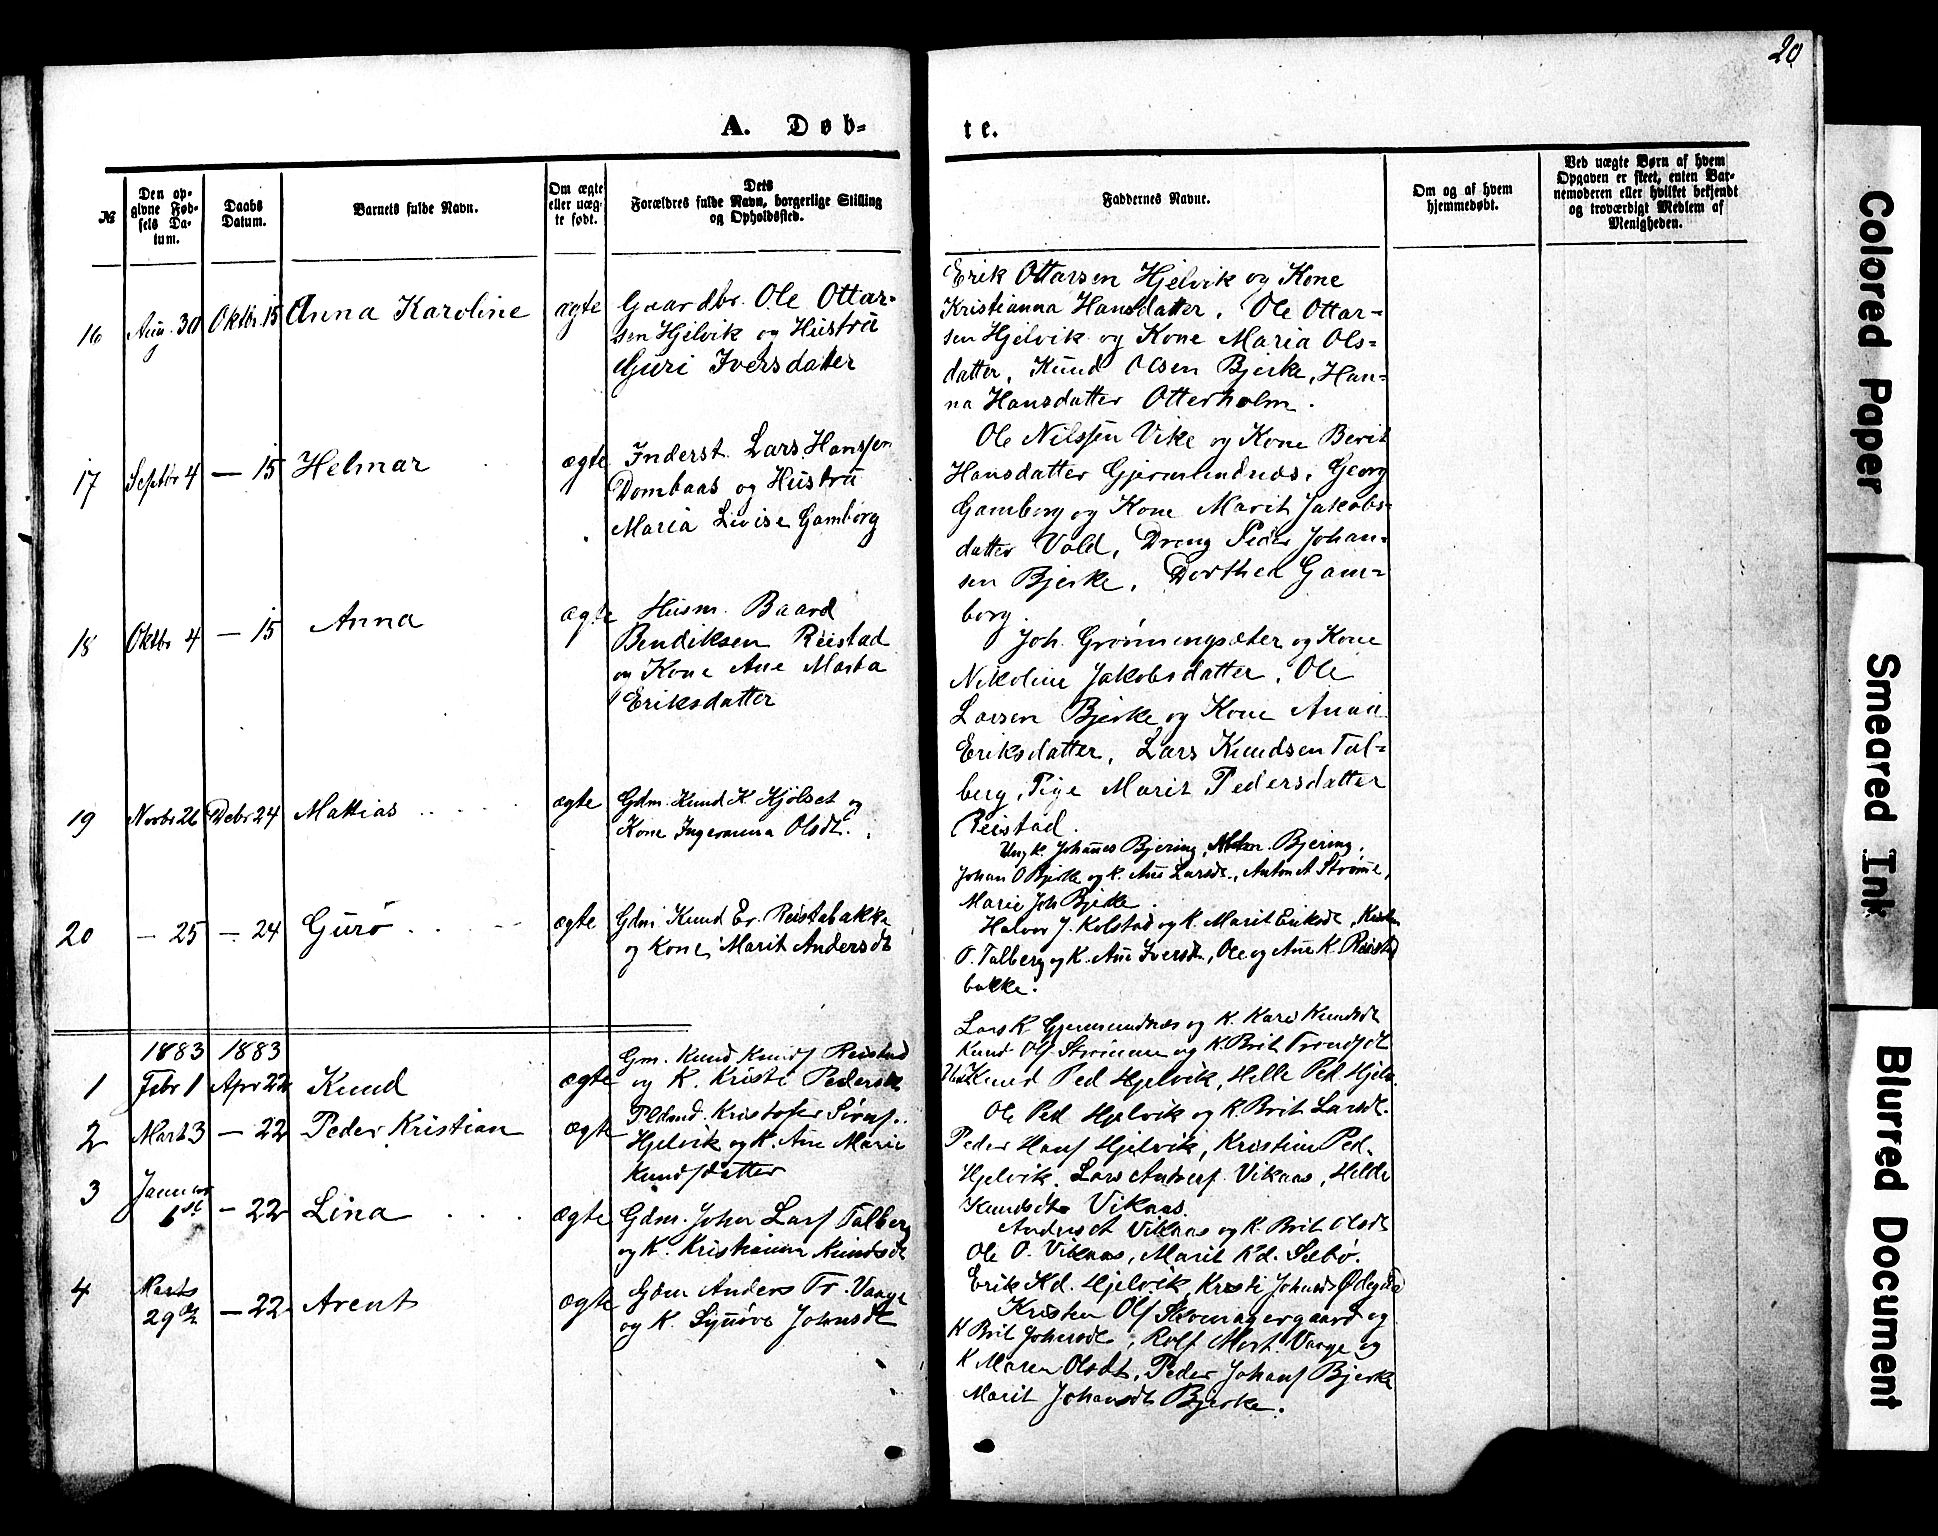 20
A. Døb-
te.
№
Den op-
givne Fød-
sels Da-
tum.
Daabs
Datum.
Barnets fulde Navn.
Om ægte
eller uæg-
te født.
Dets
Forældres fulde Navn, borgerlige Stilling
og Opholdssted.
Faddernes Navne.
Om og af hvem
hjemmedøbt.
Ved uægte Børn af hvem
Opgaven er skeet, enten Bar-
nemoderen eller hvilket bekjendt
og troværdigt Medlem af
Menigheden.
16 Aug. 30 Oktbr. 15 Anna Karoline ægte
Gaardbr. Ole Ottar-
sen Hjelvik og Hustru
Guri Iversdatter
Erik Ottarsen Hjelvik og Kone
Kristianna Hansdatter. Ole Ottar-
sen Hjelvik og Kone Maria Ols-
datter, Knud Olsen Bjerke, Han-
na Hansdatter Otterholm.
17 Septbr 4 — 15 Helmar ægte
Inderst. Lars Hanssen
Dombaas og Hustru
Maria Lovise Gamborg
Ole Nilssen Vike og Kone Berit
Hansdatter Gjermundnæs, Georg
Gamborg og Kone Marit Jakobs-
datter Vold, Dreng Peder Johan-
sen Bjerke, Dorthea Gam-
borg.
18 Oktbr 4 — 15 Anna ægte
Husm. Baard
Bendiksen Reistad
og Kone Ane Marta
Eriksdatter
Joh. Grønningsæter og Kone
Nikoline Jakobsdatter, Ole
Larsen Bjerke og Kone Anna
Eriksdatter, Lars Knudsen Tal-
berg, Pige Marit Pedersdatter
Reistad.
19 Novbr 26 Debr 24 Mattias ægte
Gdm. Knud K. Kjölset og
Kone Ingeranna Olsdt.
Ungk. Johannes Bjering, Bjering,
Johan O Bjerke og K. Ane Larsdt., Anton A Strømme,
Marie Joh Bjerke.
20 — 25 — 24 Gurø ægte
Gdm Knud Er. Reistabakke
og Kone Marit Andersdt
Halvor J. Kolstad og K. Marit Eriksdt,
O. Talberg og K. Ane Iversdt, Ole og Ane K. Reista
bakke.
1883 1883
1 Febr 1 Apr 22 Knud ægte
Gm. Knud Knuds Reistad
og K. Kristi Pedersdt
Lars K. Gjermundnæs og K. Kari Knudsdt
Knud Ols Strømme og K. Brit Trondsdt
Knud Ped Hjelvik, Helle Ped. Hjelv.
2 Marts 3 — 22 Peder Kristian ægte
Pldsmd. Kristofer Sivers.
Hjelvik og K. Ane Marie
Knudsdatter
Ole Ped Hjelvik og K. Brit Larsdt.
Peder Hans Hjelvik, Kristine Ped.
Hjelvik. Lars Anders. Viknas, Helde
Knudsdtr Viknas.
3 Januar
6te — 22 Lina ægte
Gdm. Johan Lars Talberg
og K. Kristianna Knudsdt
Anders A Viknas og K. Brit Olsdt
Ole O. Viknas, Marit Kd. Sæbø.
Erik Kd. Hjelvik, Kristi Johansdt Ødegård
4 Marts
29de — 22 Arent ægte
Gdm Anders Tr. Vaage
og K. Synnøve Johnsdt
Kristen Ols Skovragergaard og
K Brit Johansdt, Rolf Mort. Vaage og
K Maren Olsdt, Peder Johans Bjerke
Marit Johansdt Bjerke.
Colored Paper
Smeared Ink
Blurred Document